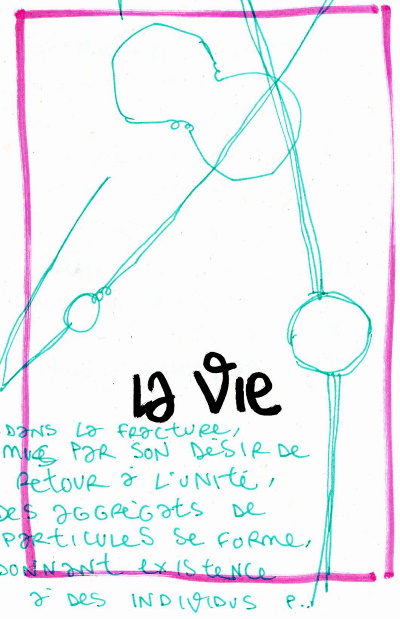 La Vie
DANS La fracture,
mué PAR SON DÉSIR DE
Retour à L'UNITÉ,
DES aGGRÉGATS DE
PARTICULES Se FORME,
DONNANT existence
à DES INDIVIDUS P..